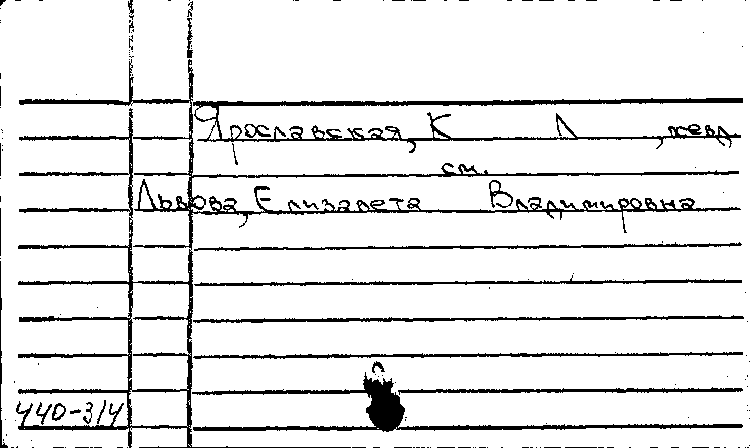 Ярославская, К Л , псевд.
см.
Львова, Елизавета Владимировна
440-3/4